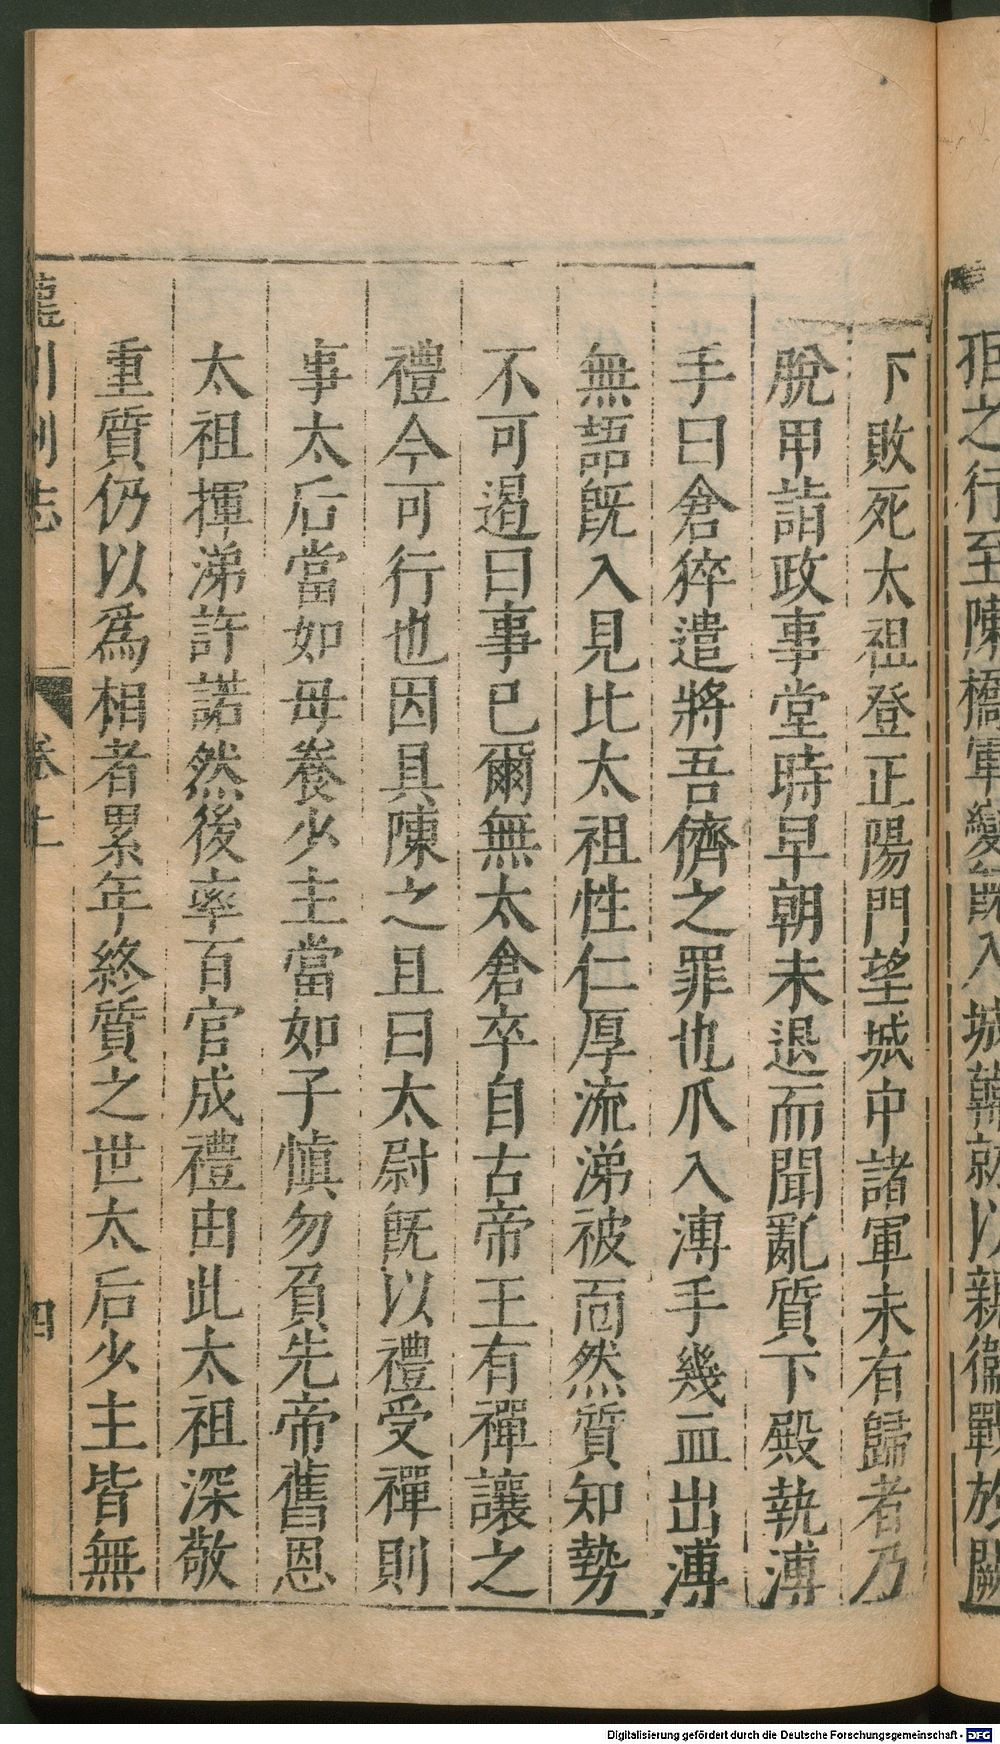 狙之行至陳橋軍變既入城韓就以親衞戰於闕
下敗死太祖登正陽門望城中諸軍未有歸者乃
脫甲詣政事堂時早朝未退而聞亂質下殿執溥
手曰倉猝遣將吾儕之罪也爪入溥手幾血出溥
無語既入見比太祖性仁厚流涕被面然質知勢
不可遏曰事已爾無太倉卒自古帝王有禪讓之
禮今可行也因具陳之且曰太尉既以禮受禪則
事太后當如母養少主當如子慎勿負先帝舊恩
太祖揮涕許諾然後率百官成禮由此太祖深敬
重質仍以爲相者累年終質之世太后少主皆無
龍川別志 卷上 四
Digitalisierung gefördert durch die Deutsche Forschungsgemeinschaft - DFG